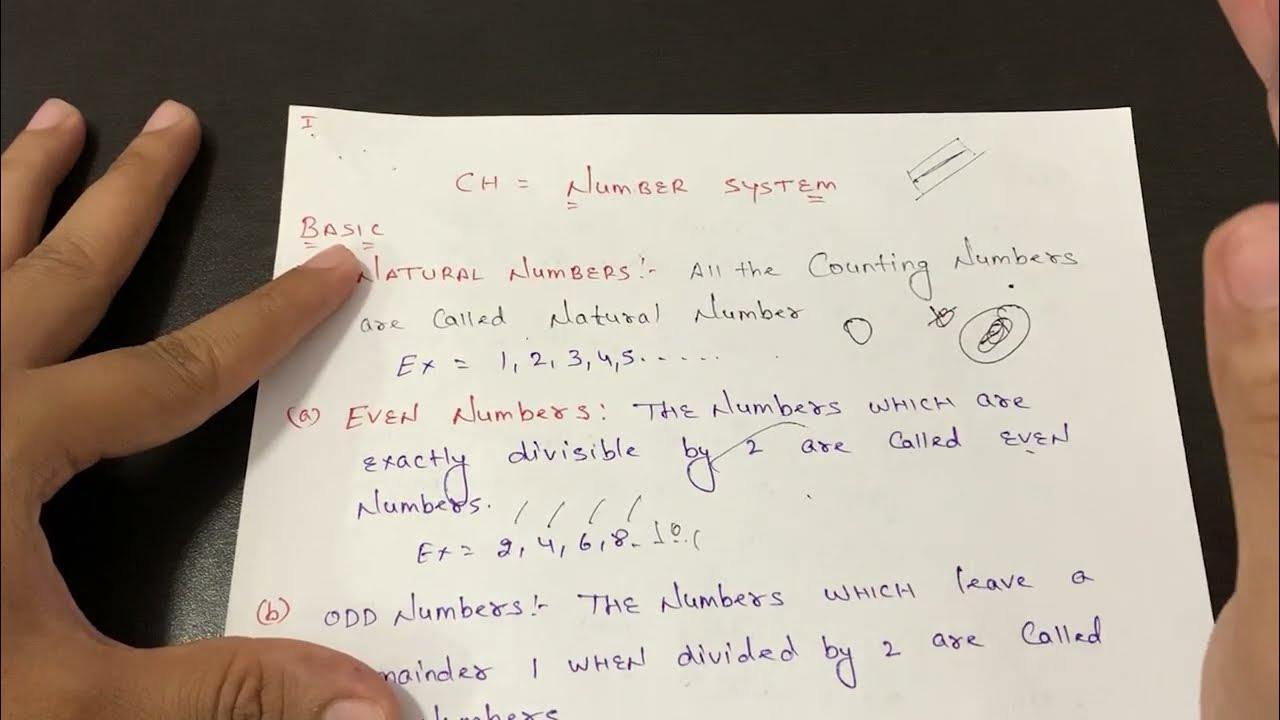 I
CH = NUMBER SYSTEM
BASIC
NATURAL NUMBERS:- All the Counting Numbers
are Called Natural Number
Ex = 1, 2, 3, 4, 5.....
(a) EVEN Numbers: THE Numbers WHICH are
exactly divisible by 2 are Called EVEN
Numbers.
Ex = 2, 4, 6, 8. 10.(
(b) ODD Numbers:- THE Numbers WHICH leave a
mainder 1 WHEN divided by 2 are Called
umbers